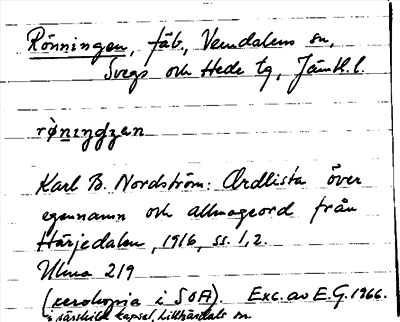 Rönningen, fäb., Vemdalens sn,
Svegs och Hede tg, Jämtl. l.
rø̀niŋdʒen
Karl B. Nordström: Ordlista över
egennamn och allmogeord från
Härjedalen, 1916, ss. 1, 2.
Ulma 219
(xerokopia i SOA). Exc. av E.G. 1966.
i särskild kapsel, Lillhärdals sn.